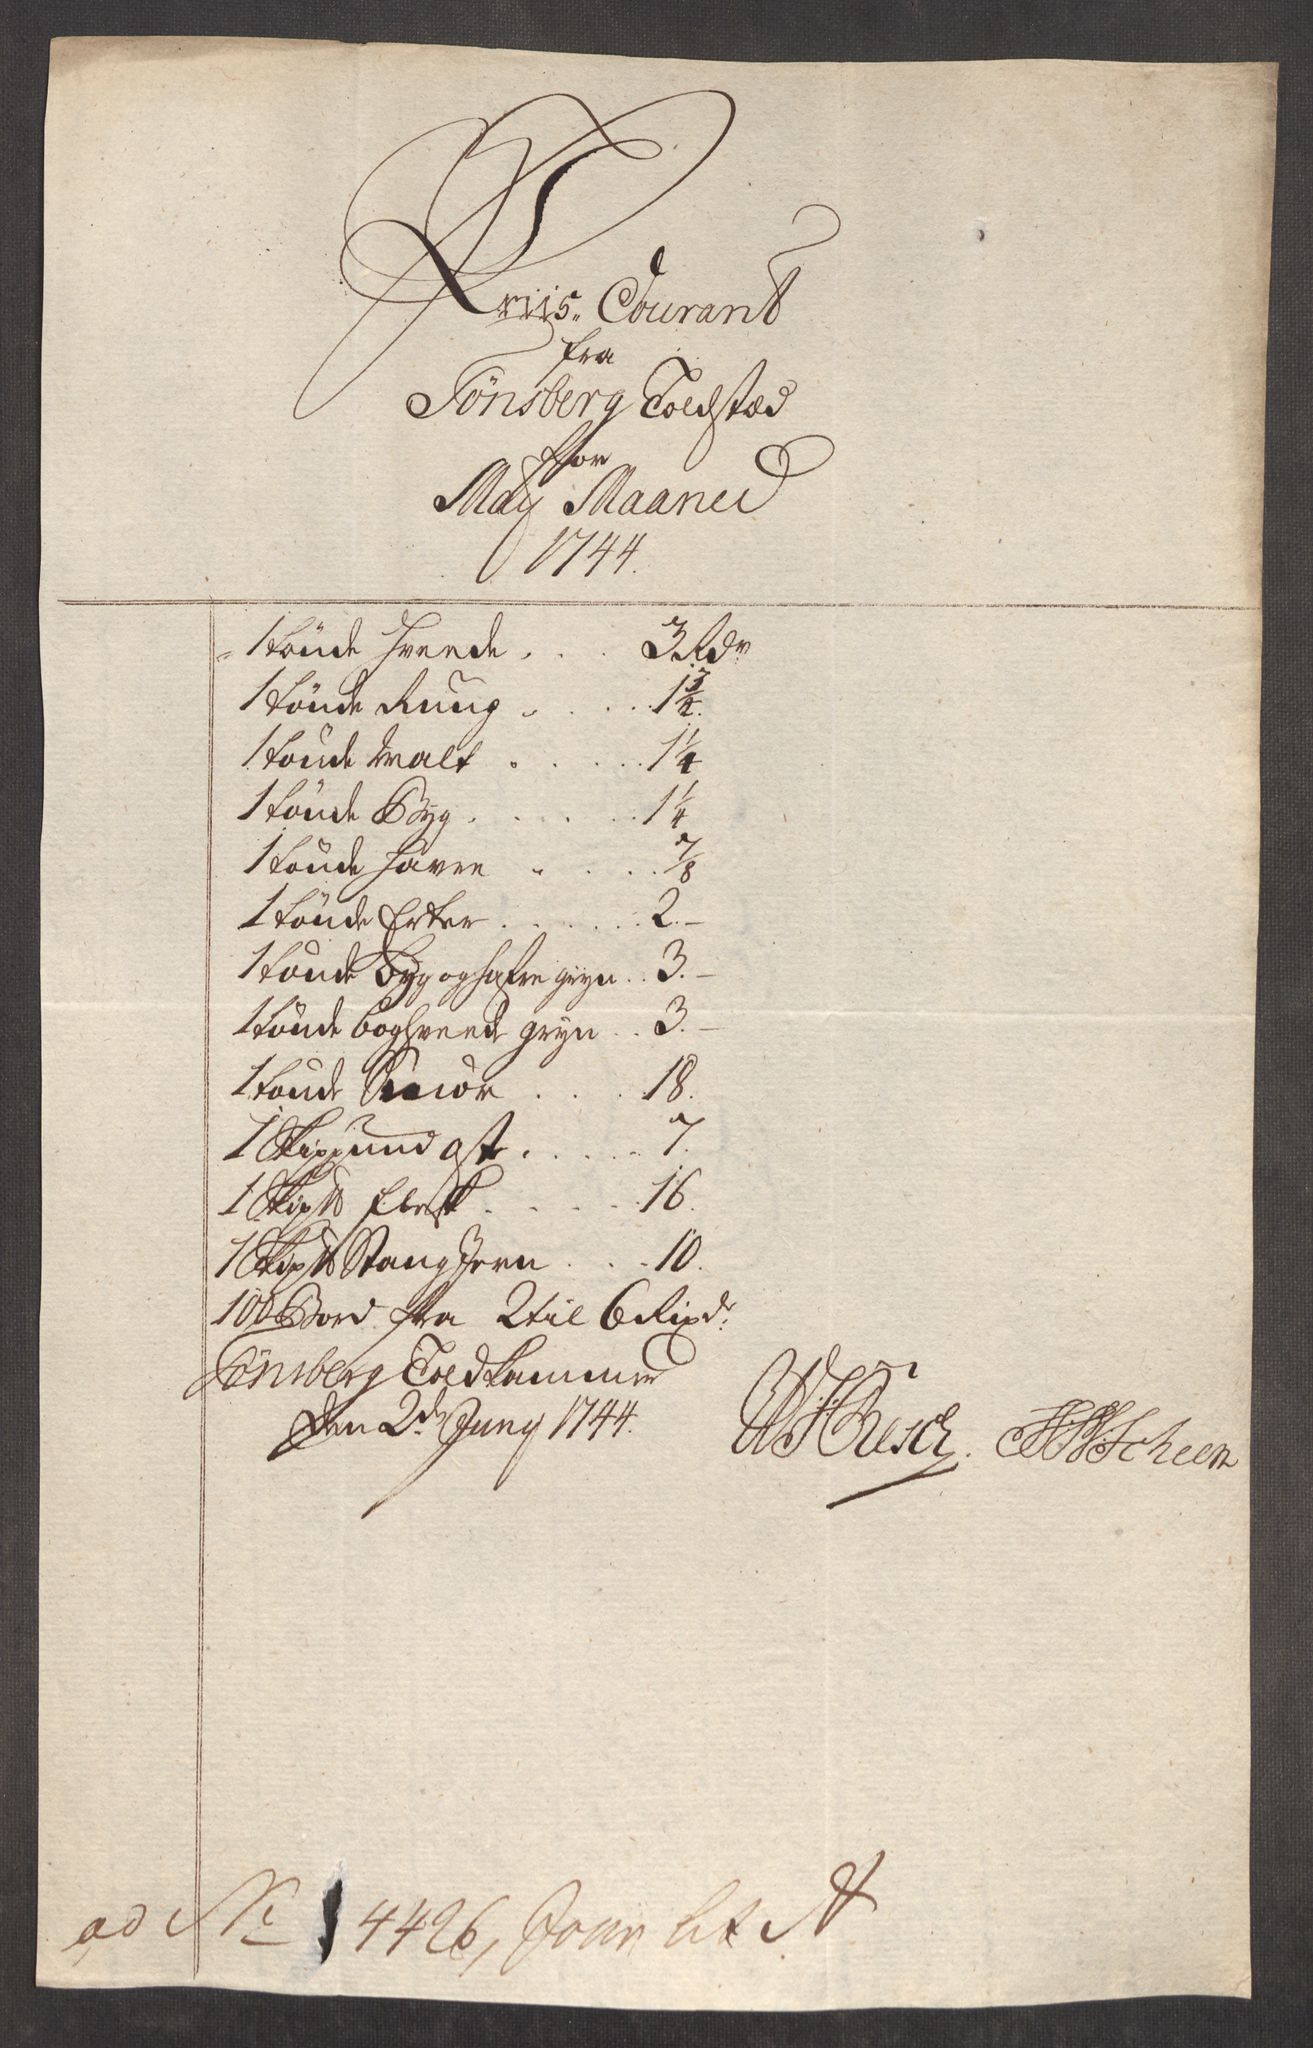 Priis Courant
fra
Tönsberg Toldstæd
ffor
May Maaned
1744.
1 tönde Hveede . . . 3 Rdr
1 tönde Rúúg . . . . . 1 3/4.
1 tönde Malt . . . . . 1 1/4
1 tönde Byg . . . . . 1 1/4
1 tönde Havre . . . . 7/8
1 tönde Erter . . . . . 2. —
1 tönde Byg og Hafre gryn . . 3. —
1 tönde boghveede gryn . . 3. —
1 tönde Smör . . . 18.
1 Skippund Ost . . . . . 7.
1 Skip℔ flesk . . . . . 16.
1 Skip℔ Stang Jern . . . 10.
100 Bord fra 2 til 6 Rixdr.
Tönsberg Toldkammer
Den 2de Juny 1744.
ad No 4426, Jour Lit A